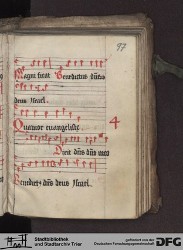 97
Magnificat Benedictus dñs
deus Israel.
Quatuor evangeliste
4
Dixit dñs dño meo
Benedictus dñs deus Israel.
Stadtbibliothek
und Stadtarchiv Trier
gefördert von der
Deutschen Forschungsgemeinschaft
DFG